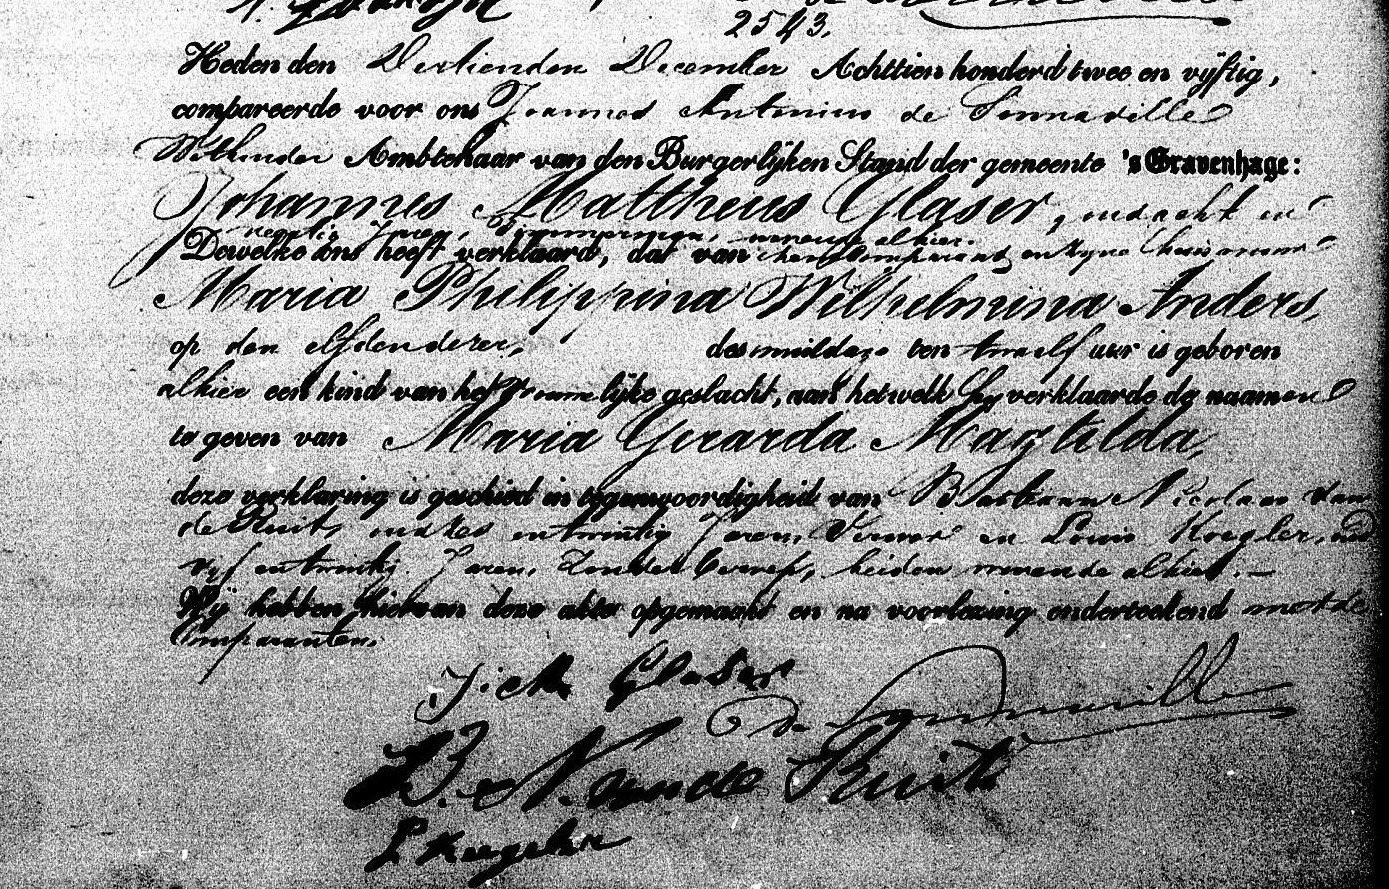 2543.
Heden den Dertienden December Achttien honderd twee en vijftig,
compareerde voor ons Joannes Antonius de Sonnaville
Wethouder Ambtenaar van den Burgerlijken Stand der gemeente 's Gravenhage:
Johannes Mattheus Glaser, oud acht en
veertig Jaren, Timmerman, wonende alhier.
Dewelke ons heeft verklaard, dat van hem Comparant, en zyne huisvrouw
Maria Philippina Wilhelmina Anders,
op den elfden dezer, des middags ten twaalf uur is geboren
alhier een kind van het vrouwelijke geslacht, aan hetwelk hy verklaarde de naamen
te geven van Maria Gerarda Magtilda,
deze verklaring is geschied in tegenwoordigheid van Bastiaan Nicolaas van
de Ruit, oud zes en twintig Jaren, Verwer en Louis Koegler, oud
vyf en twintig Jaren, Zonder beroep, beiden wonende alhier.—
Wij hebben hiervan deze akte opgemaakt en na voorlezing onderteekend met de
Comparanten.
Glaser
de Sonnaville
B. N. van de Ruit
L Koegeler